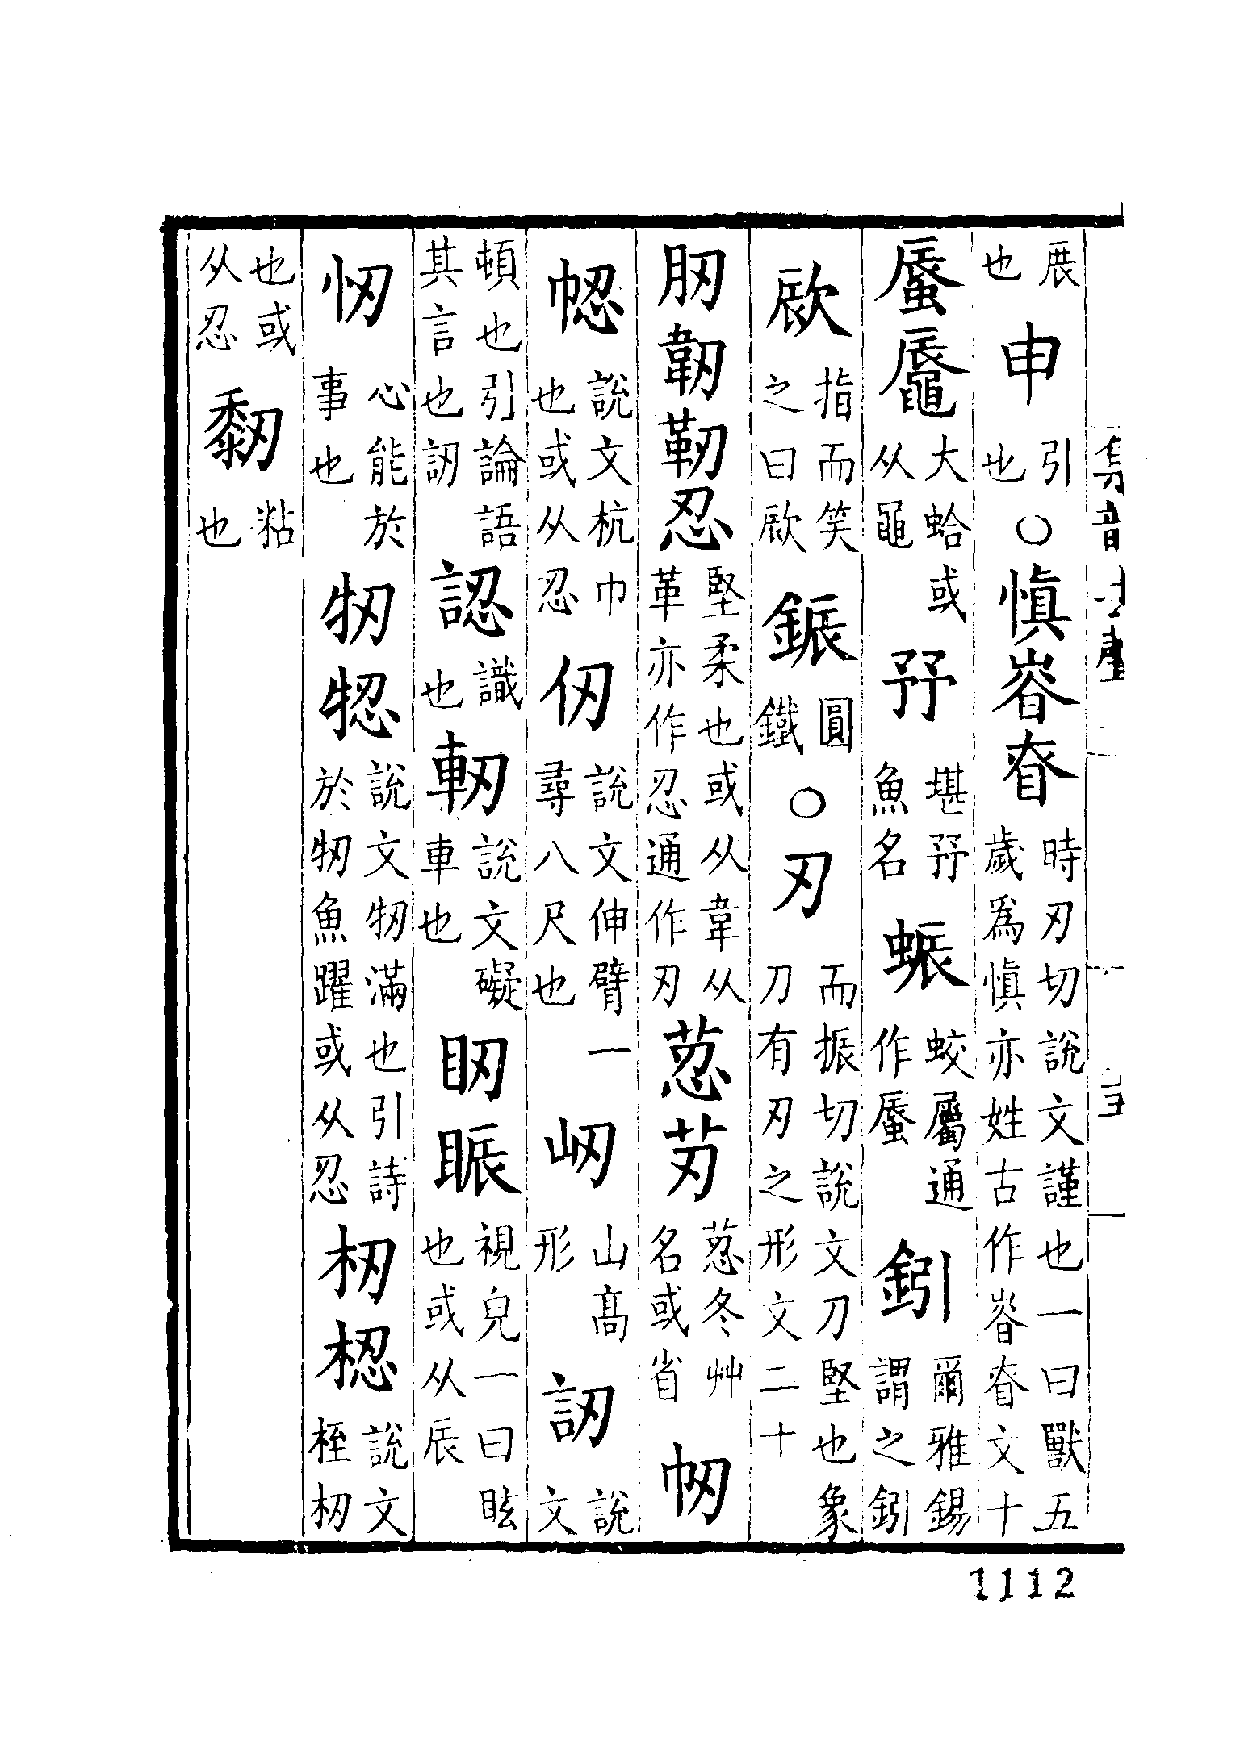 展也申引也○慎昚眘時刃切說文謹也一曰獸五歲爲慎亦姓古作昚眘文十
蜃大蛤或从黽㐨堪㐨魚名蜄蛟屬通作蜃鈏爾雅錫謂之鈏
㰮指而笑之曰㰮鋠圓鐵○刃而振切說文刀堅也象刀有刃之形文二十
肕韌靭忍堅柔也或从韋从革亦作忍通作刃荵荵冬艸名或省
說文枕巾也或从忍仞說文伸臂一尋八尺也屻山高形訒說文
頓也引論語其言也訒認識也軔說文礙車也䀼視皃一曰眩也或从辰
心能於事也牣說文牣滿也引詩於牣魚躍或从忍杒梕說文桎杒
也或从忍粘也
集韻
1112